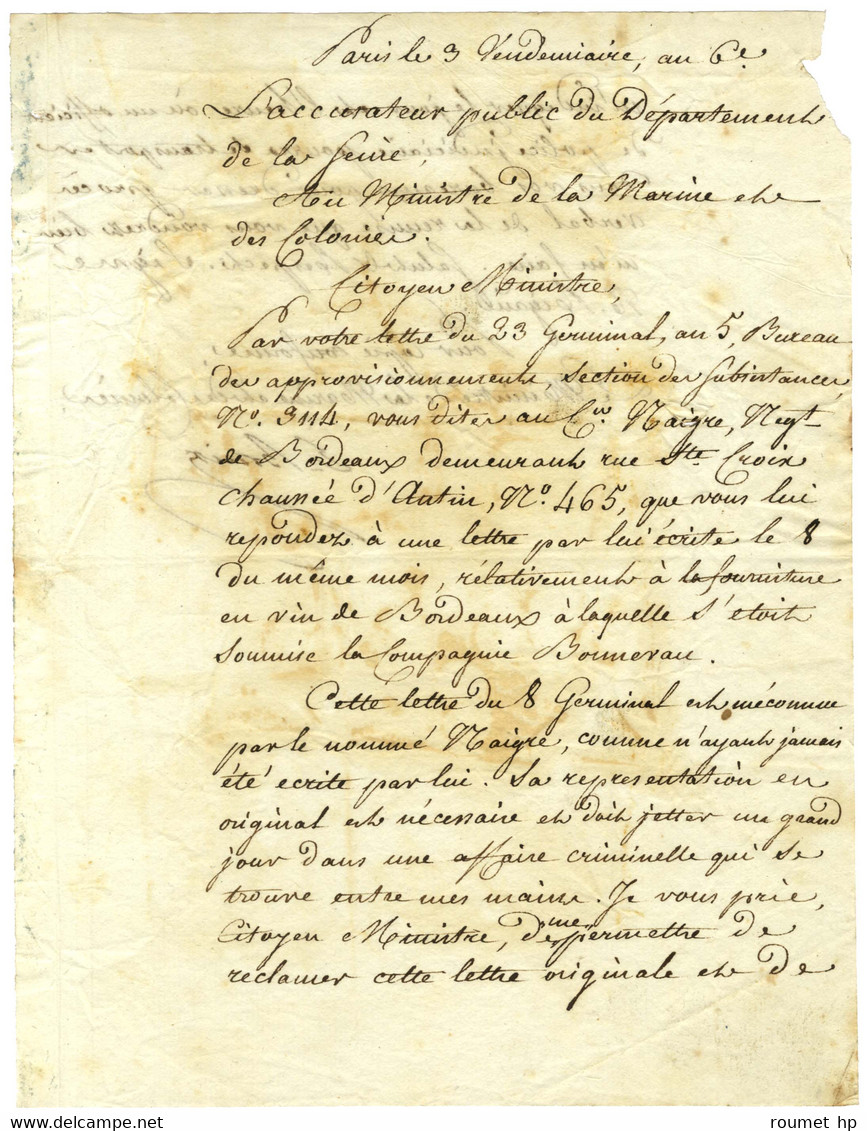 Paris le 3 Vendemiaire, au 6e
L'accusateur public du Département
de la Seine,
Au Ministre de la Marine et
des Colonies.
Citoyen Ministre,
Par votre lettre du 23 Germinal, an 5, Bureau
des approvisionnements, section des subsistances,
No. 3114, vous dites au Cen Naigre, Negt
de Bordeaux demeurant rue Ste Croix
chaussée d'Antin, No. 465, que vous lui
repondez à une lettre par lui écrite le 8
du même mois, rélativement à la fourniture
en vin de Bordeaux à laquelle s'etoit
soumise la Compagnie Bonnevau.
Cette lettre du 8 Germinal est méconnue
par le nommé Naigre, comme n'ayant jamais
été ecrite par lui. Sa representation en
original est nécessaire et doit jetter un grand
jour dans une affaire criminelle qui se
trouve entre mes mains. Je vous prie,
Citoyen Ministre, de me permettre de
reclamer cette lettre originale et de
roumet hp